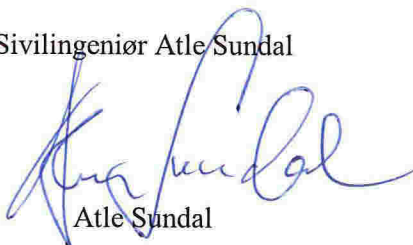 Sivilingeniør Atle Sundal
Atle Sundal
Atle Sundal